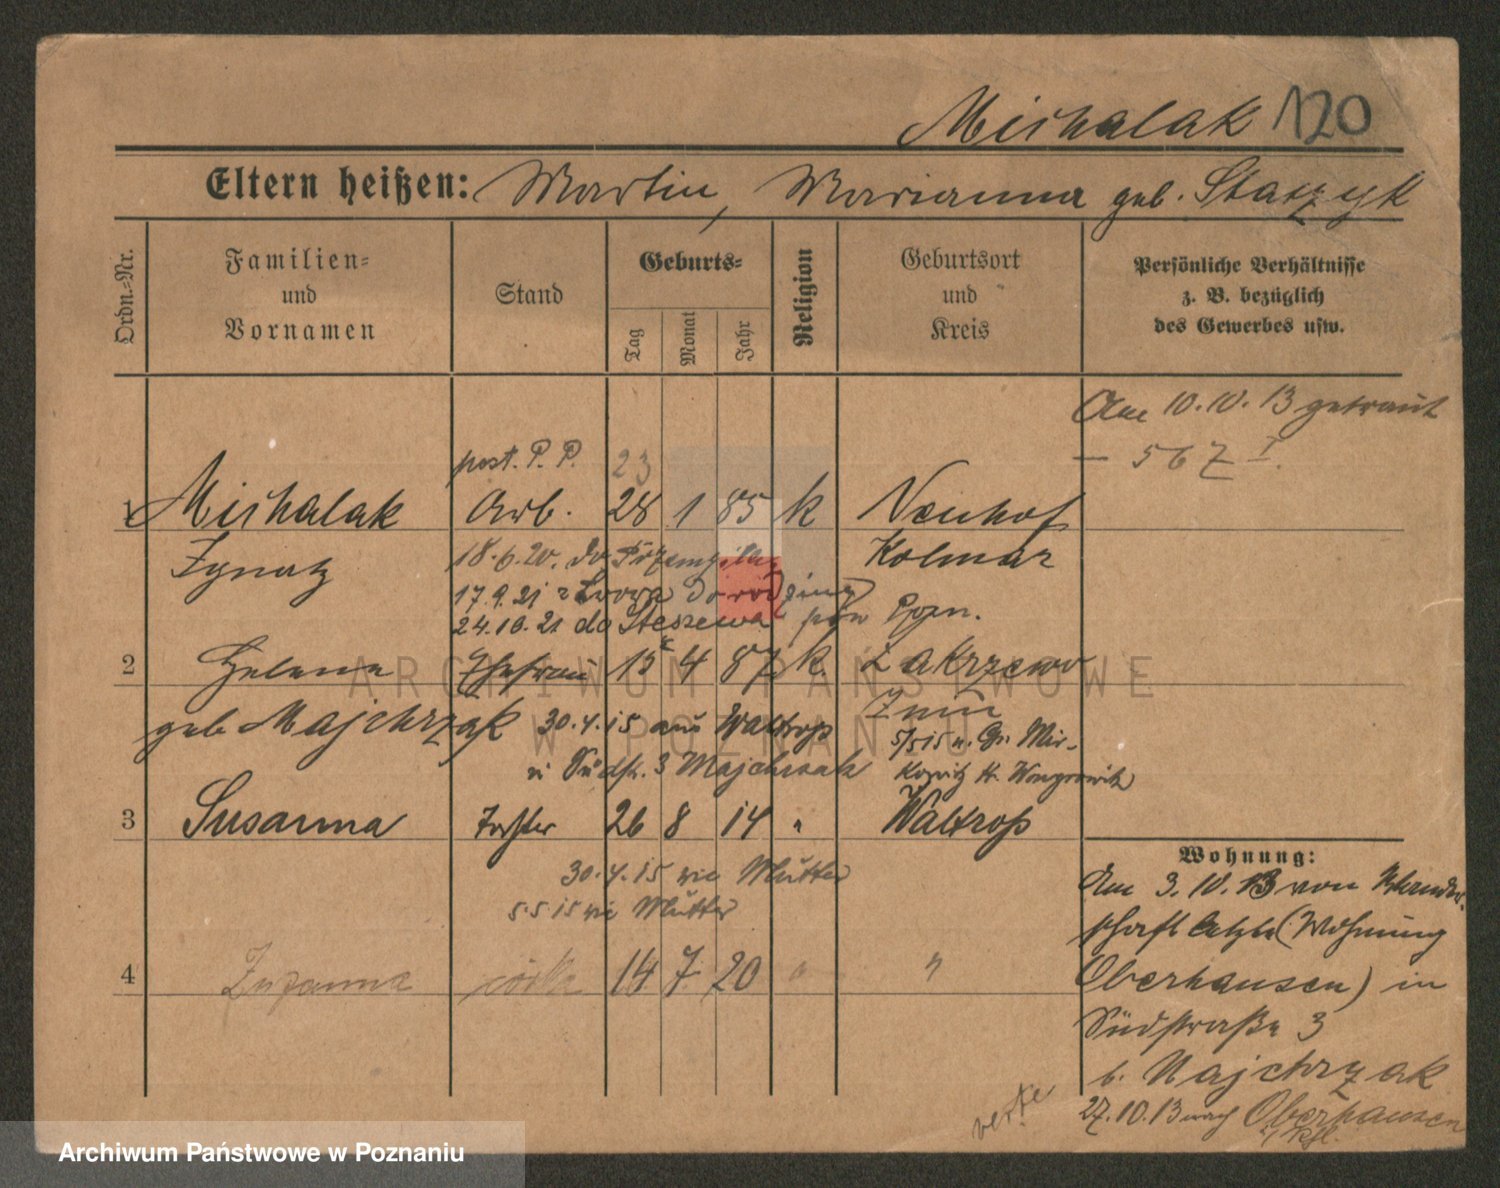 Michalak 120
Eltern heißen: Martin, Marianna geb. Staszyk
Ordn.-Nr.
Familien-
und
Vornamen
Stand
Geburts-
Tag
Monat
Jahr
Religion
Geburtsort
und
Kreis
Persönliche Verhältnisse
z. B. bezüglich
des Gewerbes usw.
Am 10.10.13 getraut
— 567 I.
post. P. P. 23
1 Michalak Arb. 28 1 85 k Neuhof
Ignatz 18.6.20. do Kolmar
17.9.21 z
24.10.21 do Stęszewa pow Pozn.
2 Helena Ehefrau 15 4 87 k. Zakrzewo
Znin
geb Majchrzak 30.4.15 aus Waltrop
5/5 15 n. Gr. Mir-
n Südstr. 3 Majchrzak
kowitz Kr. Wongrowitz
3 Susanna Tochter 26 8 14 " Waltrop
30.4.15 wie Mutter
5 5 15 wie Mutter
4 Zuzanna córka 14 7 20 " "
Wohnung:
Am 3.10.13 von Wander-
schaft letzte (Wohnung
Oberhausen) in
Südstraße 3
b. Majchrzak
27.10.13 nach Oberhausen
verte
ARCHIWUM PAŃSTWOWE
W POZNANIU
Archiwum Państwowe w Poznaniu